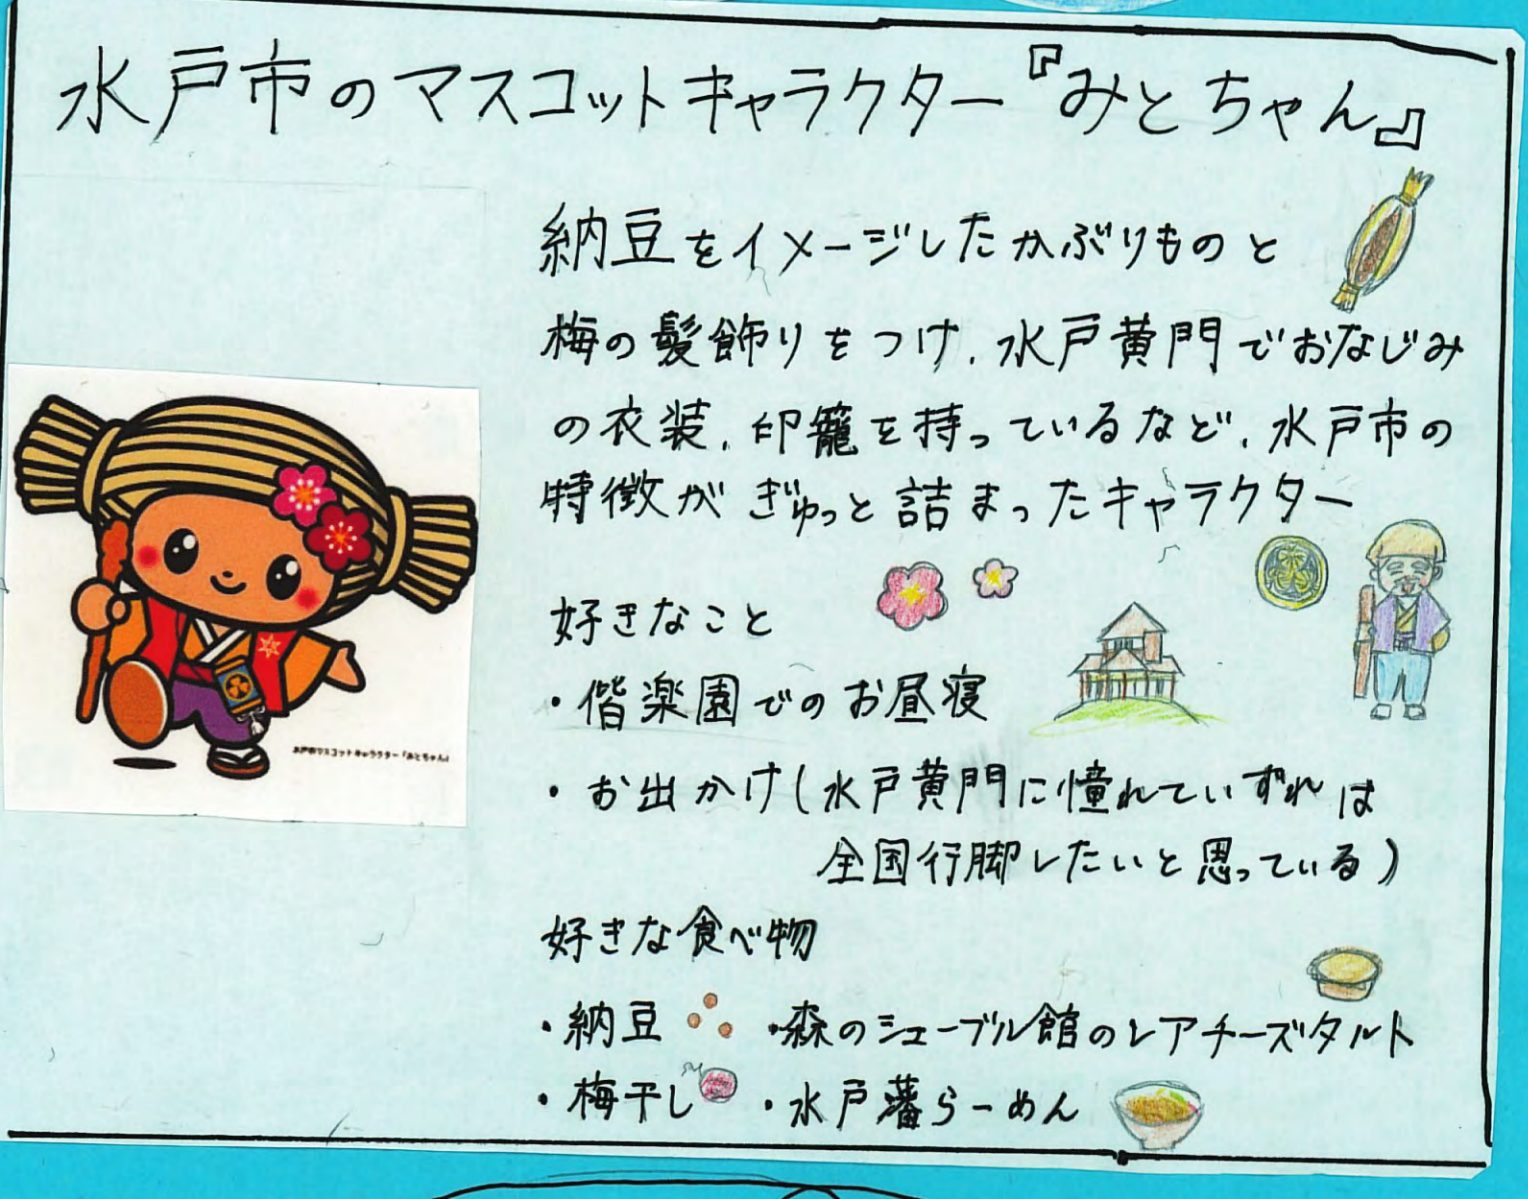 水戸市のマスコットキャラクター『みとちゃん』
納豆をイメージしたかぶりものと
梅の髪飾りをつけ、水戸黄門でおなじみ
の衣装、印籠を持っているなど、水戸市の
特徴がぎゅっと詰まったキャラクター
水戸市マスコットキャラクター「みとちゃん」
好きなこと
・偕楽園でのお昼寝
・お出かけ(水戸黄門に憧れていずれは
全国行脚したいと思っている)
好きな食べ物
・納豆 ・森のシェーブル館のレアチーズタルト
・梅干し ・水戸藩らーめん